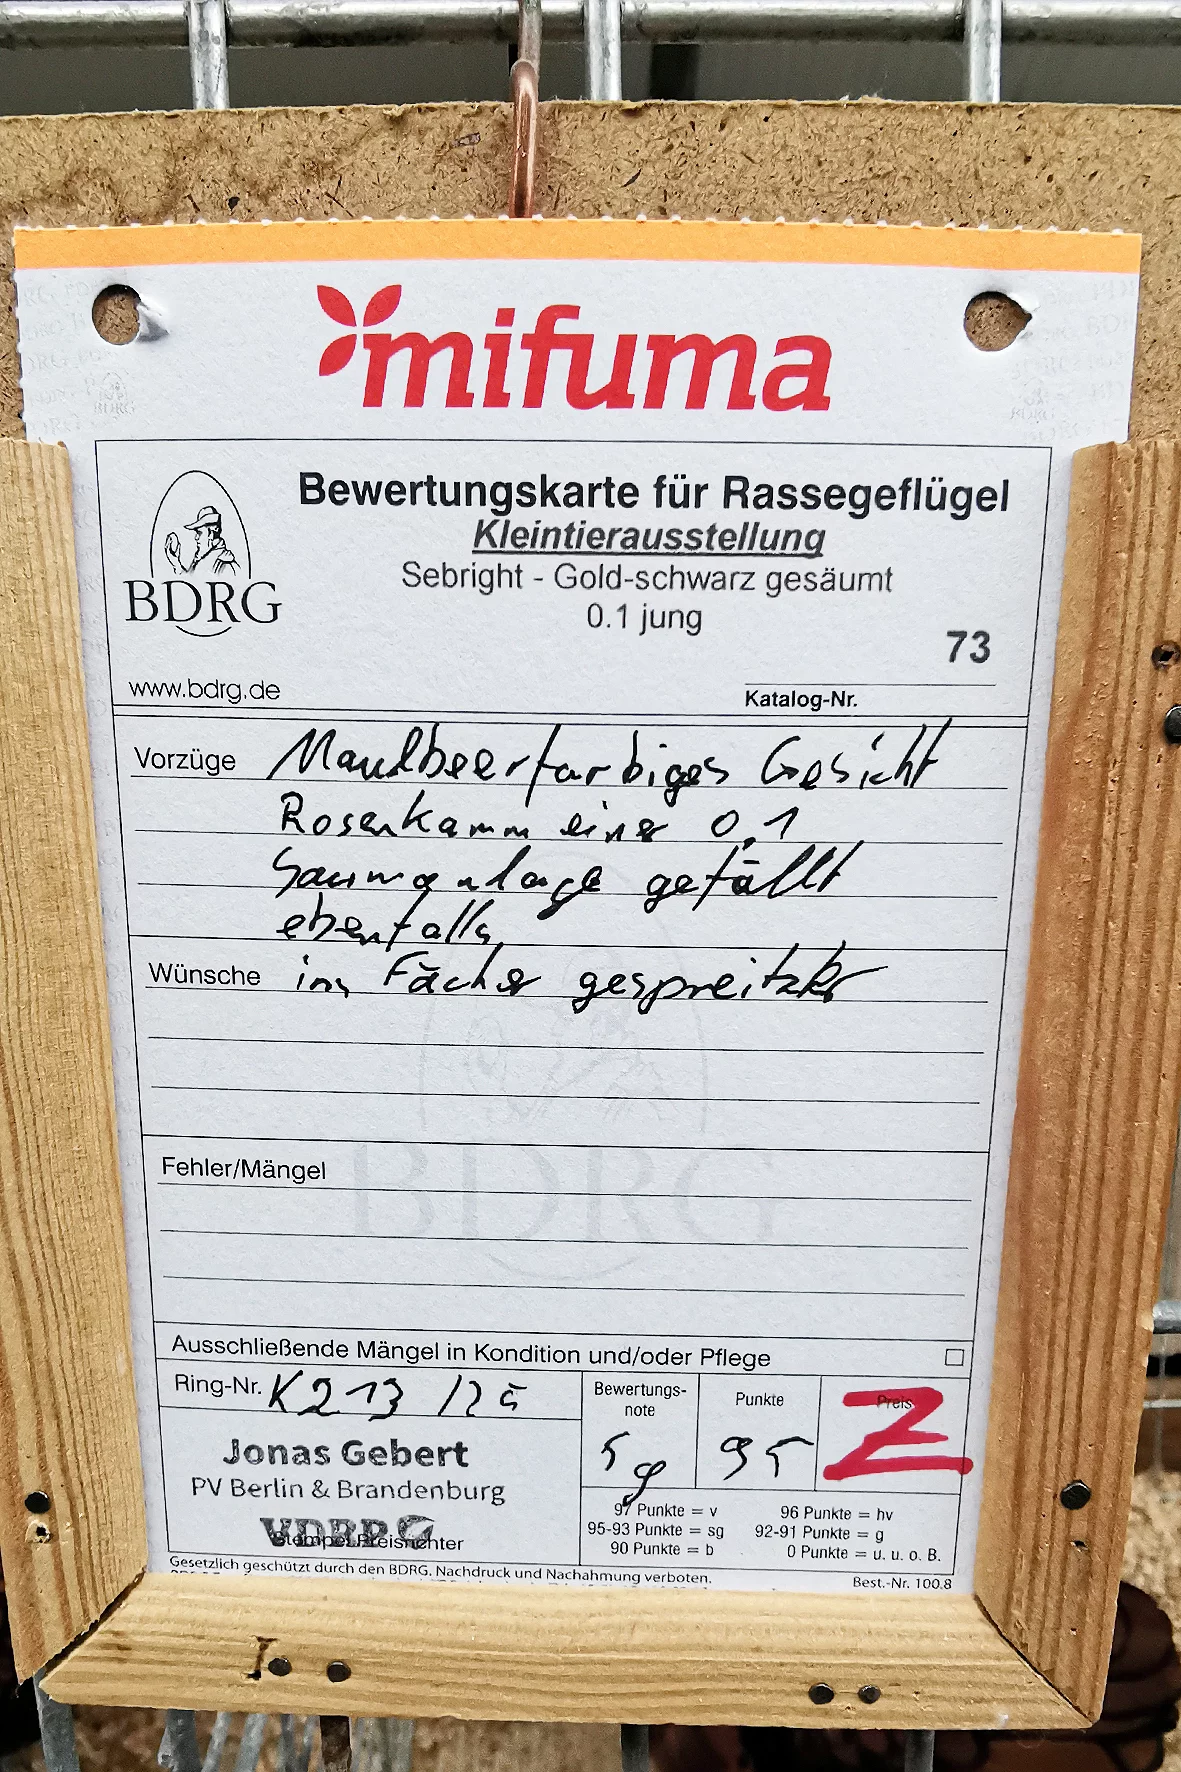 mifuma
Bewertungskarte für Rassegeflügel
Kleintierausstellung
Sebright - Gold-schwarz gesäumt
0.1 jung
BDRG
73
www.bdrg.de
Katalog-Nr.
Vorzüge Maulbeerfarbiges Gesicht
Rosenkamm einer 0,1
Saumanlage gefällt
ebenfalls
Wünsche im Fächer gespreitzter
Fehler/Mängel
Ausschließende Mängel in Kondition und/oder Pflege
Ring-Nr. K213
Bewertungs-
note
sg
Punkte
95
Preis
Z
Jonas Gebert
PV Berlin & Brandenburg
VDRP
Stempel Preisrichter
97 Punkte = v 96 Punkte = hv
95-93 Punkte = sg 92-91 Punkte = g
90 Punkte = b 0 Punkte = u. u. o. B.
Gesetzlich geschützt durch den BDRG. Nachdruck und Nachahmung verboten.
Best.-Nr. 100.8